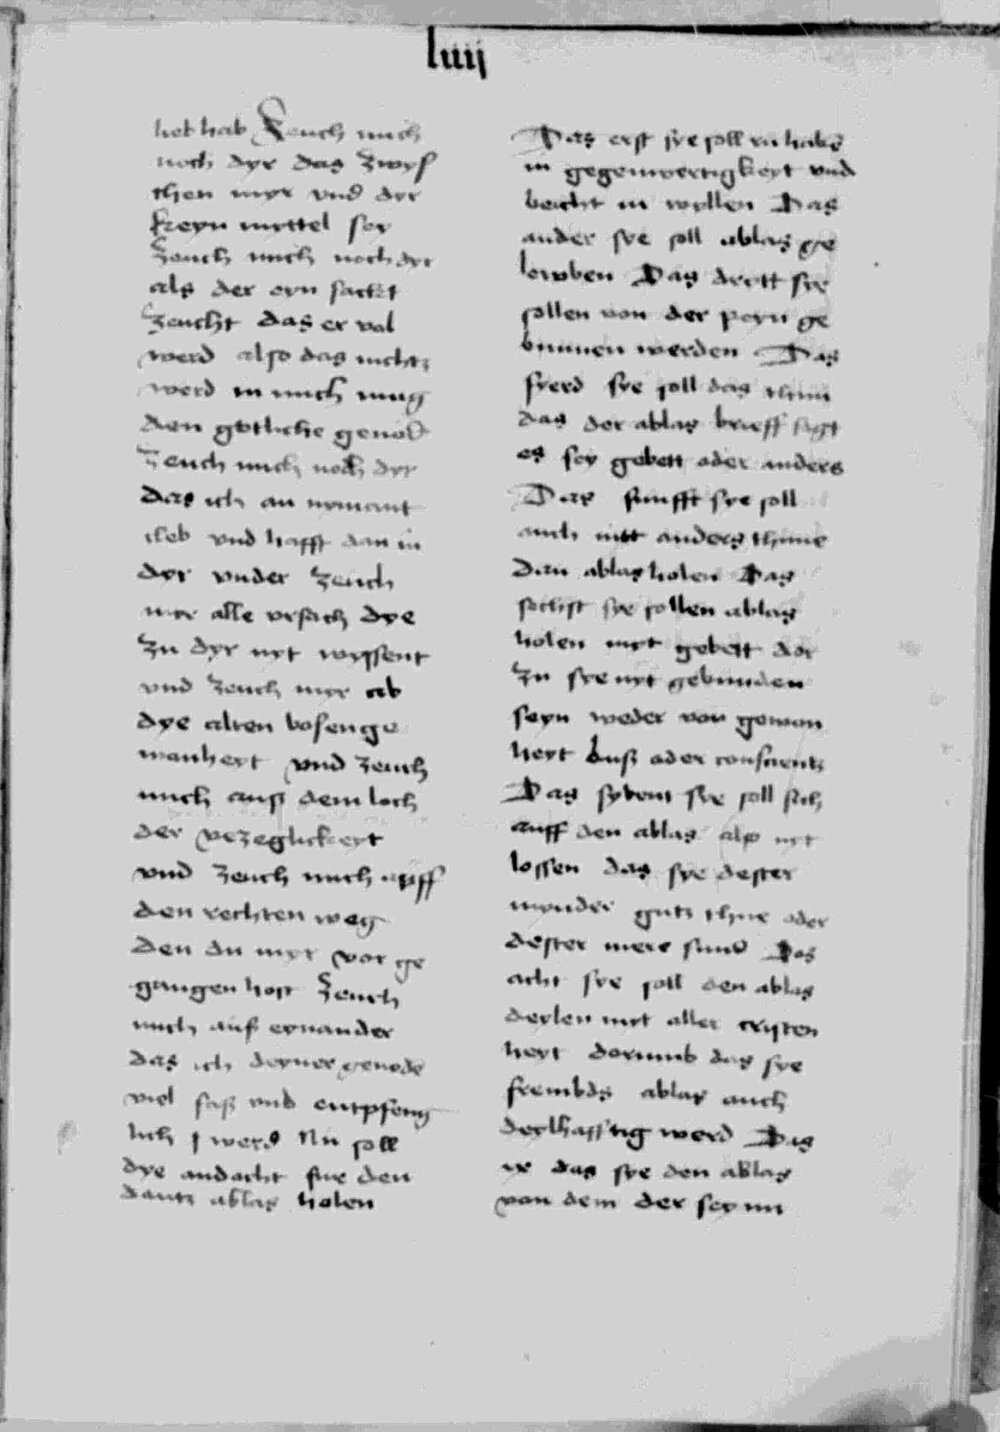 liiij
lieb hab Zeuch mich
noch dyr das zwys
chen myr vnd dyr
keyn myttel sey
Zeuch mich noch dyr
als der eyn sackt
zeucht das er vol
werd also das nichtz
werd in mich mug
den gotliche genod
Zeuch mich noch dyr
das ich an nymant
cleb vnd hafft dan in
dyr vnder zeuch
myr alle vrsach dye
zu dyr nyt wyssent
vnd zeuch myr ab
dye alten bosen ge
wanheyt vnd zeuch
mich auss dem loch
der vezeglickeyt
vnd zeuch mich auff
den rechten weg
den du myr vor ge
gangen host Zeuch
mich auß eynander
das ich deyner genode
viel faß vnd entpfeng
lich werd Nu soll
dye andacht sye den
dantz ablas holen
Das erst sye soll ru habe
in gegenwertigkeyt vnd
beicht in wyllen Das
ander sye soll ablas ge
lewben Das drytt sye
sollen von der peyn ge
bunnen werden Das
fyerd sye soll das thun
das der ablas brieff sagt
es sey gebett oder anders
Das funfft sye soll
auch nitt anders thune
dan ablas holen Das
sechst sye sollen ablas
holen myt gebett dor
zu sye nyt gebunden
seyn weder von gewon
heyt buß oder conscientz
Das sybent sye soll sich
auff den ablas also nyt
lossen das sye dester
mynder gutz thue oder
dester mere sund Das
acht sye soll den ablas
deylen myt aller cristen
heyt dorumb das sye
frembds ablas auch
deylhafftig werd Das
ix das sye den ablas
von dem der sey nu